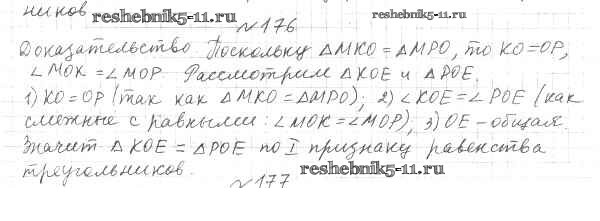 ников reshebnik5-11.ru
№176 reshebnik5-11.ru
Доказательство. Поскольку ΔMKO = ΔMPO, то KO = OP,
∠MOK = ∠MOP. Рассмотрим ΔKOE и ΔPOE.
1) KO = OP (так как ΔMKO = ΔMPO); 2) ∠KOE = ∠POE (как
смежные с равными: ∠MOK = ∠MOP), 3) OE – общая.
Значит ΔKOE = ΔPOE по I признаку равенства
треугольников. reshebnik5-11.ru
№177